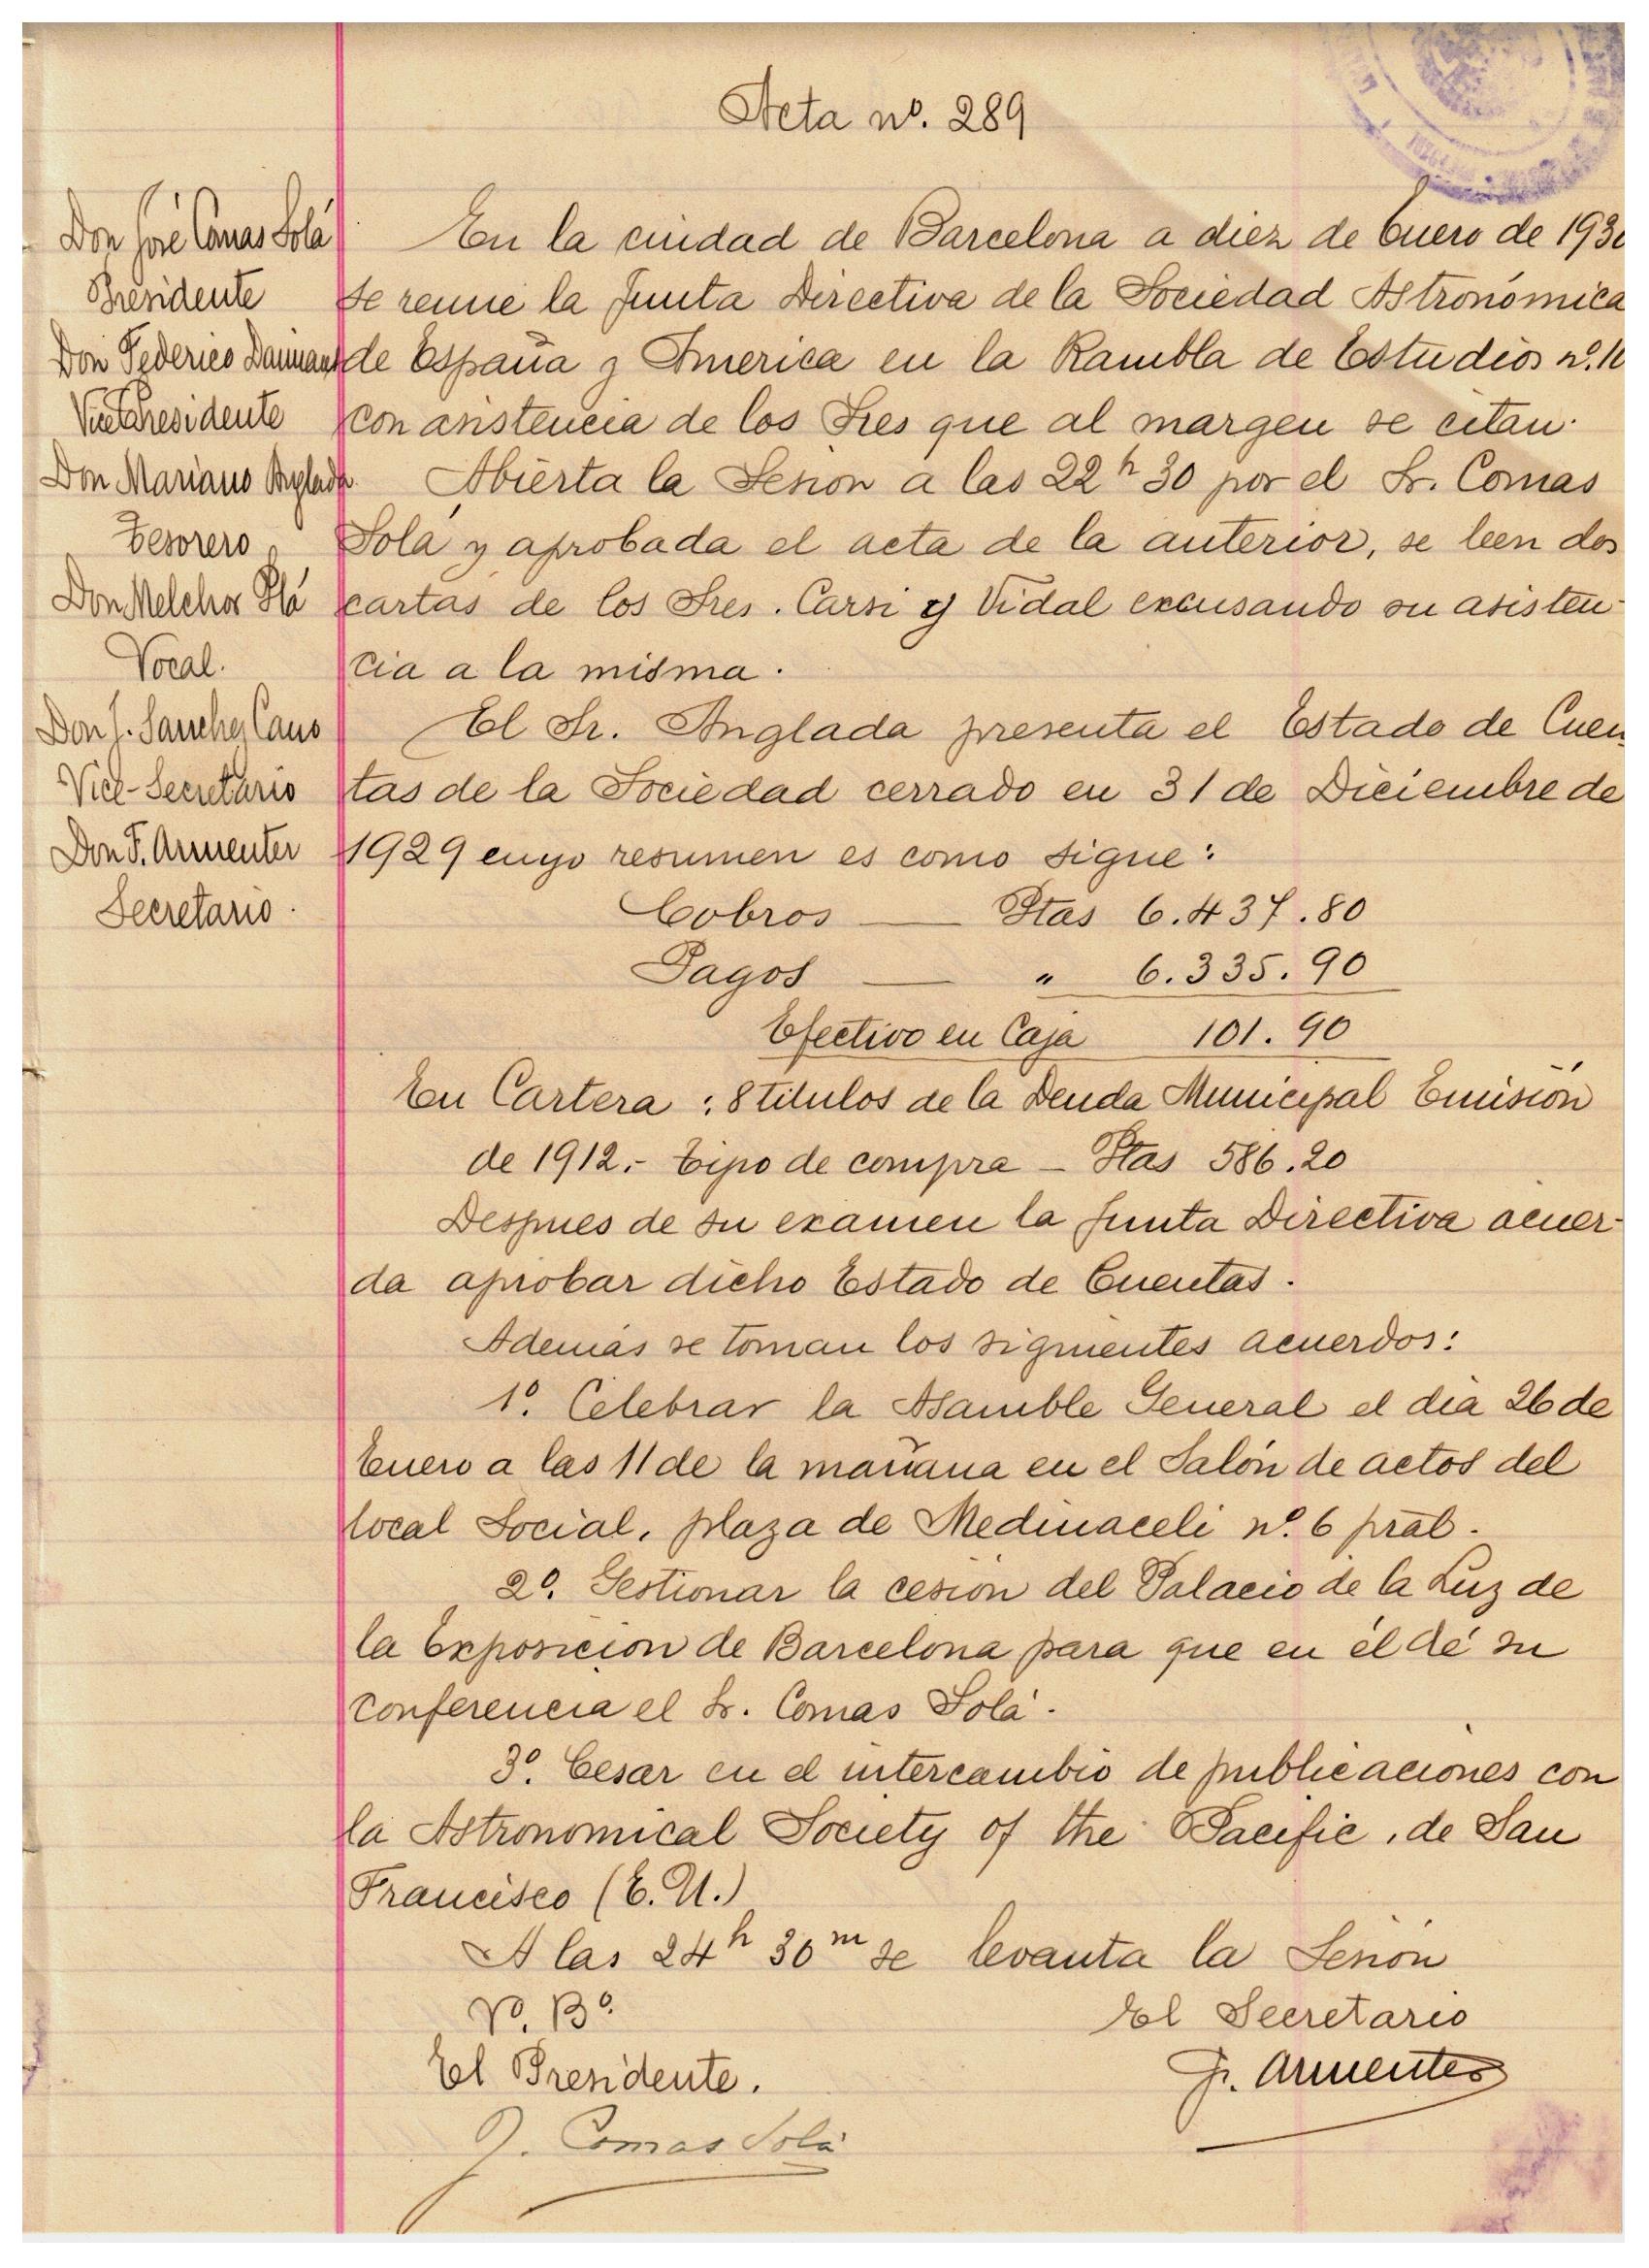 Acta nº. 289
Don José Comas Solá
Presidente
Don Federico
Vice Presidente
Don Mariano Anglada
Tesorero
Don Melchor Plá
Vocal.
Don J. Sanchez Cano
Vice-Secretario
Don F. Armenter
Secretario.
En la ciudad de Barcelona a diez de Enero de 1930
se reune la Junta Directiva de la Sociedad Astronómica
de España y America en la Rambla de Estudios nº.
con asistencia de los Sres que al margen se citan.
Abierta la Sesion a las 22h 30 por el Sr. Comas
Solá y aprobada el acta de la anterior, se leen dos
cartas de los Sres. Carsi y Vidal excusando su asisten-
cia a la misma.
El Sr. Anglada presenta el Estado de Cuen
tas de la Sociedad cerrado en 31 de Diciembre de
1929 cuyo resumen es como sigue:
Cobros — Ptas 6.437.80
Pagos — " 6.335.90
Efectivo en Caja 101.90
En Cartera: 8 titulos de la Deuda Municipal Emisión
de 1912.- tipo de compra - Ptas 586.20
Despues de su examen la Junta Directiva acuer-
da aprobar dicho Estado de Cuentas.
Además se toman los siguientes acuerdos:
1º. Celebrar la Asamble General el dia 26 de
Enero a las 11 de la mañana en el Salón de actos del
local Social, plaza de Medinaceli nº. 6 pral.
2º. Gestionar la cesión del Palacio de la Luz de
la Exposicion de Barcelona para que en él dé su
conferencia el Sr. Comas Solá.
3º. Cesar en el intercambio de publicaciones con
la Astronomical Society of the Pacific, de San
Francisco (E.U.)
A las 24h 30m se levanta la Sesión
Vº. Bº.
El Presidente.
J. Comas Solá
El Secretario
F. Armenter